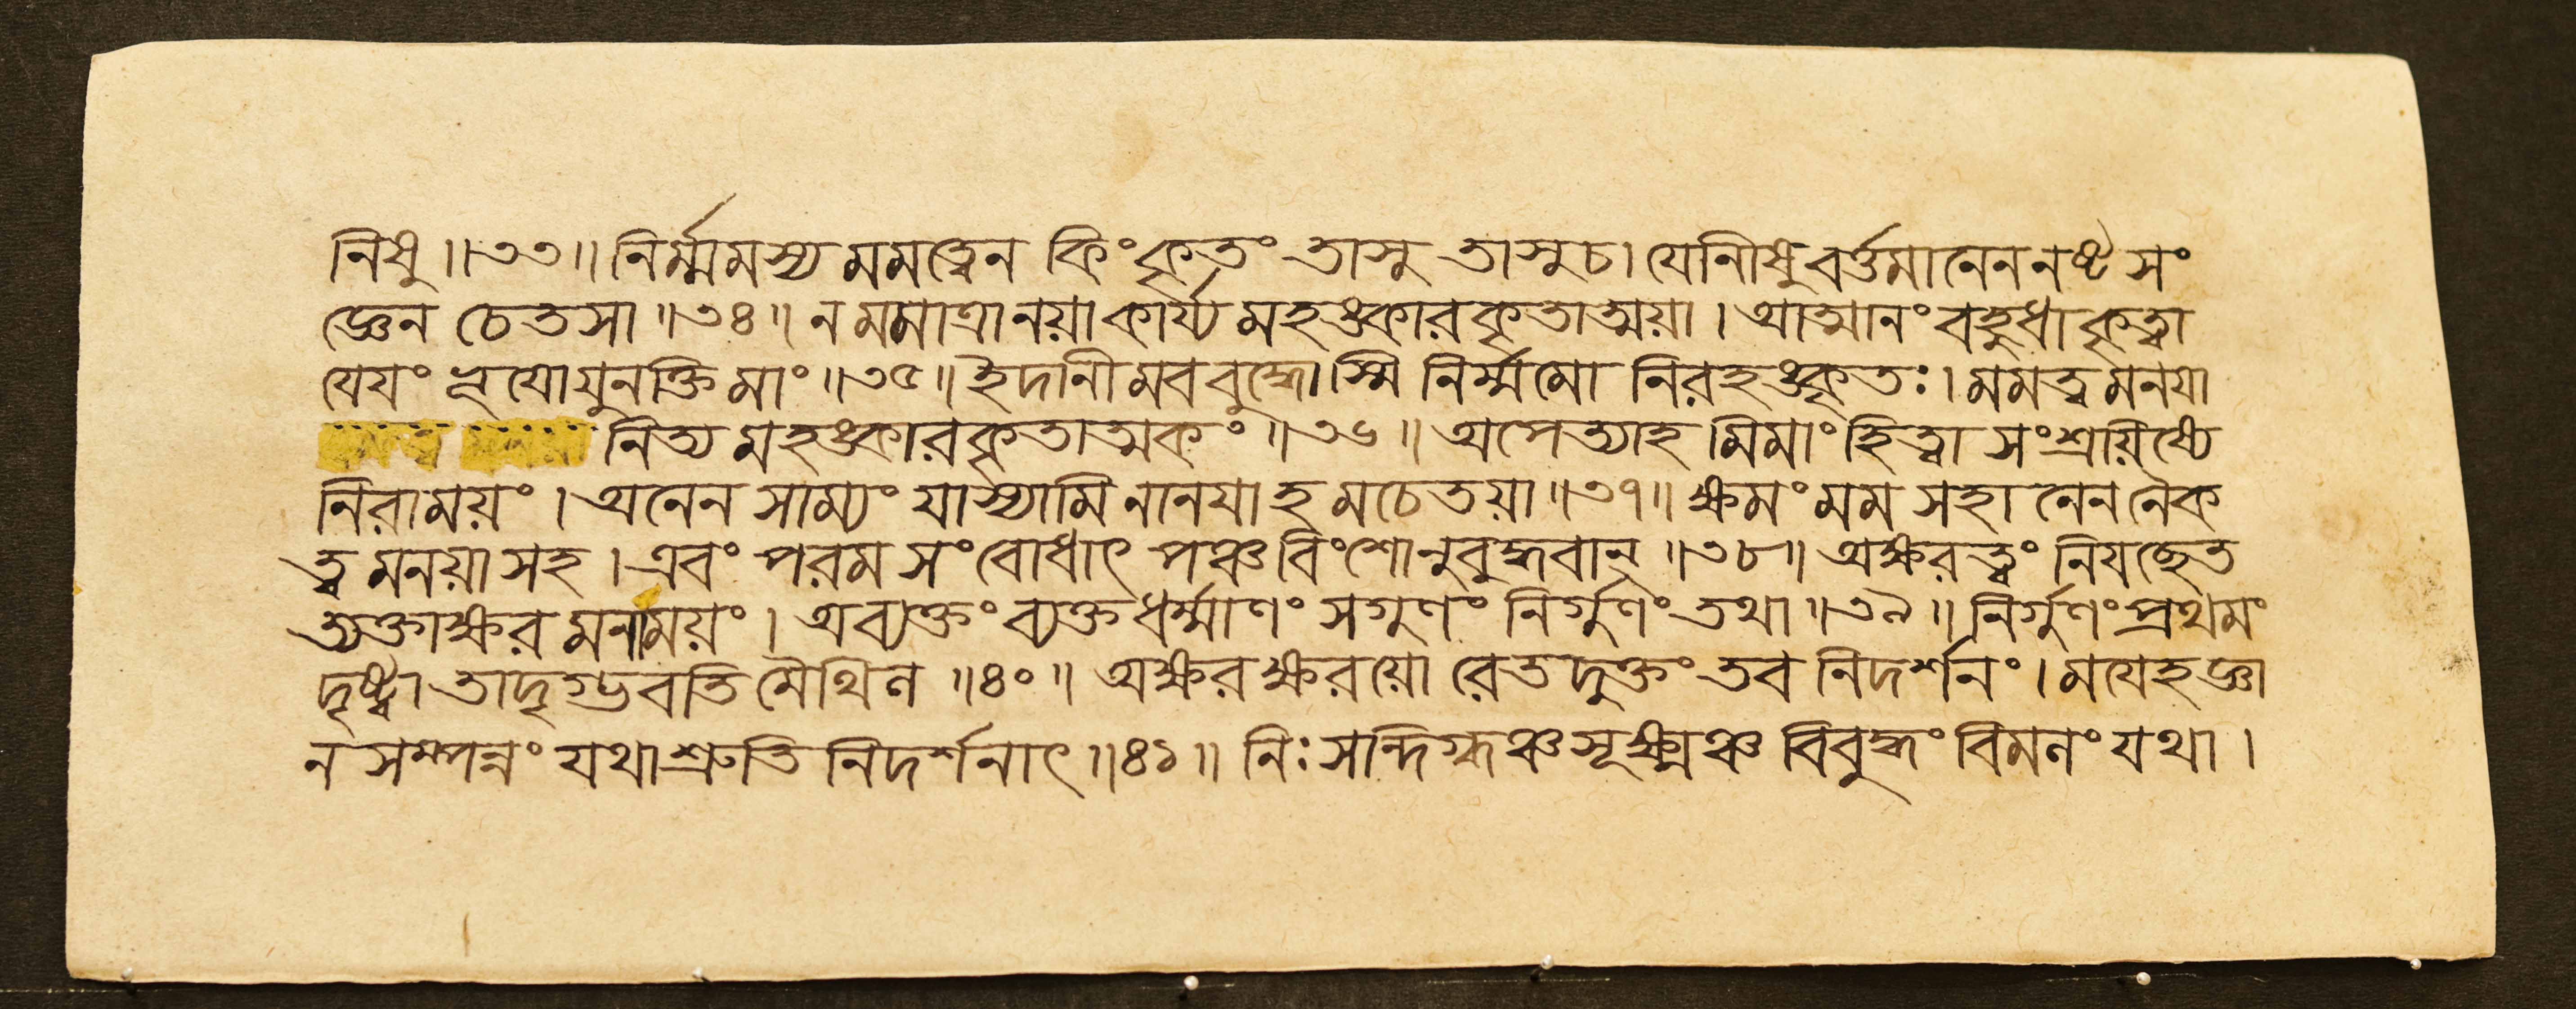 নিষু ॥৩৩॥ নির্ম্মমস্য মমত্বেন কিংকৃতং তাসু তাসুচ। যেনীষু বর্ত্তমানেন নষ্ট সং
জ্ঞেন চেতসা ॥৩৪॥ ন মমাত্রানয়া কার্য্য মহঙ্কারকৃতাত্ময়া । আত্মানং বহুধা কৃত্বা
যেয়ং ভূয়োযুনক্তি মাং ॥৩৫॥ ইদানী মববুদ্ধোস্মি নির্ম্মমো নিরহঙ্কৃতঃ। মমত্ব মনয়া
নিত্য মহঙ্কারকৃতাত্মকং ॥৩৬॥ অপেত্যাহ মিমাং হিত্বা সংশ্রয়িষ্যে
নিরাময়ং । অনেন সাম্যং যাস্যামি নানয়া হ মচেতয়া ॥৩৭॥ ক্ষমং মম সহা নেন নৈক
ত্ব মনয়া সহ । এবং পরম সংবোধাৎ পঞ্চবিংশোনুবুদ্ধবান্ ॥৩৮॥ অক্ষরত্বং নিযচ্ছেত
ত্যক্তাক্ষর মনাময়ং । অব্যক্তং ব্যক্ত ধর্ম্মাণং সগুণং নির্গুণং তথা ॥৩৯॥ নির্গুণং প্রথমং
দৃষ্ট্বা তাদৃগ্ভবতি মৈথিল ॥৪০॥ অক্ষরক্ষরয়ো রেতদুক্তং তব নিদর্শনং । ময়েহ জ্ঞা
ন সম্পন্নং যথাশ্রুতি নিদর্শনাৎ ॥৪১॥ নিঃসন্দিগ্ধঞ্চ সূক্ষ্মঞ্চ বিবুদ্ধং বিমলং যথা ।